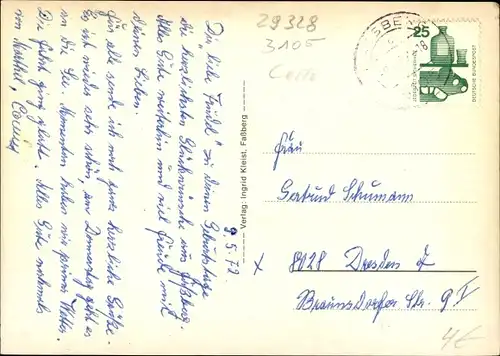 29328
3105
Celle
SBERG
25
DEUTSCHE BUNDESPOST
9.5.72
Du "liebe Trudel" zu Deinem Geburtstage
die herzlichsten Glückwünsche aus Faßberg.
Alles Gute weiterhin und viel Freude mit
Deinen Lieben.
Für alle sende ich noch ganz herzliche Grüße.
Es ist wieder sehr schön, am Donnerstag geht es
an die See. Momentan haben wir prima Wetter.
Die Fahrt ging glatt. Alles Gute nochmals
von
Verlag: Ingrid Kleist, Faßberg
Frau
Gertrud Schumann
x 8028 Dresden A
Braunsdorfer Str. 9 I
4€